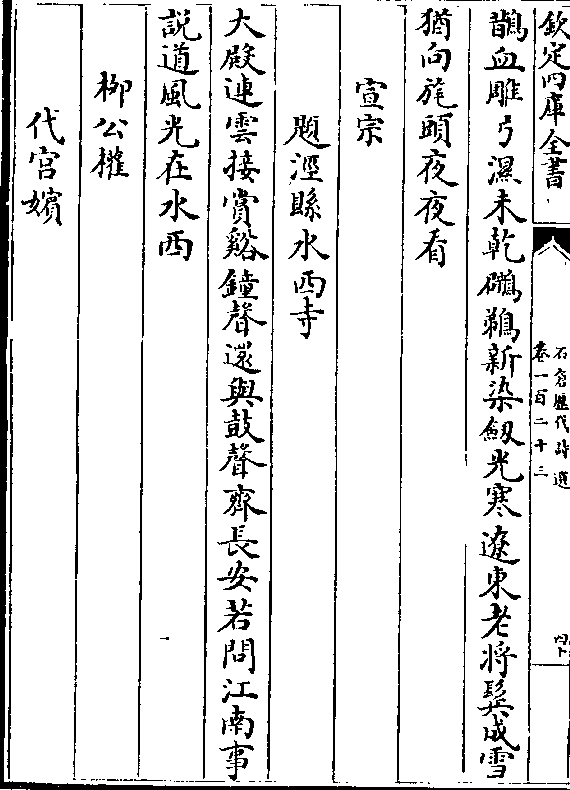 欽定四庫全書
石倉歷代詩選
卷一百二十三
鵲血雕弓濕未乾鸊鵜新染劔光寒遼東老將鬂成雪
猶向旄頭夜夜看
宣宗
題涇縣水西寺
大殿連雲接賞谿鐘聲還與鼓聲齊長安若問江南事
説道風光在水西
柳公權
代宫嬪